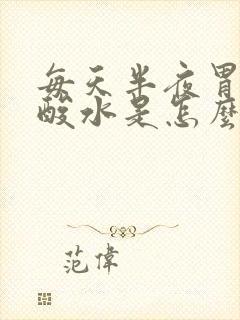 每天半夜胃
酸水是怎麼
范偉